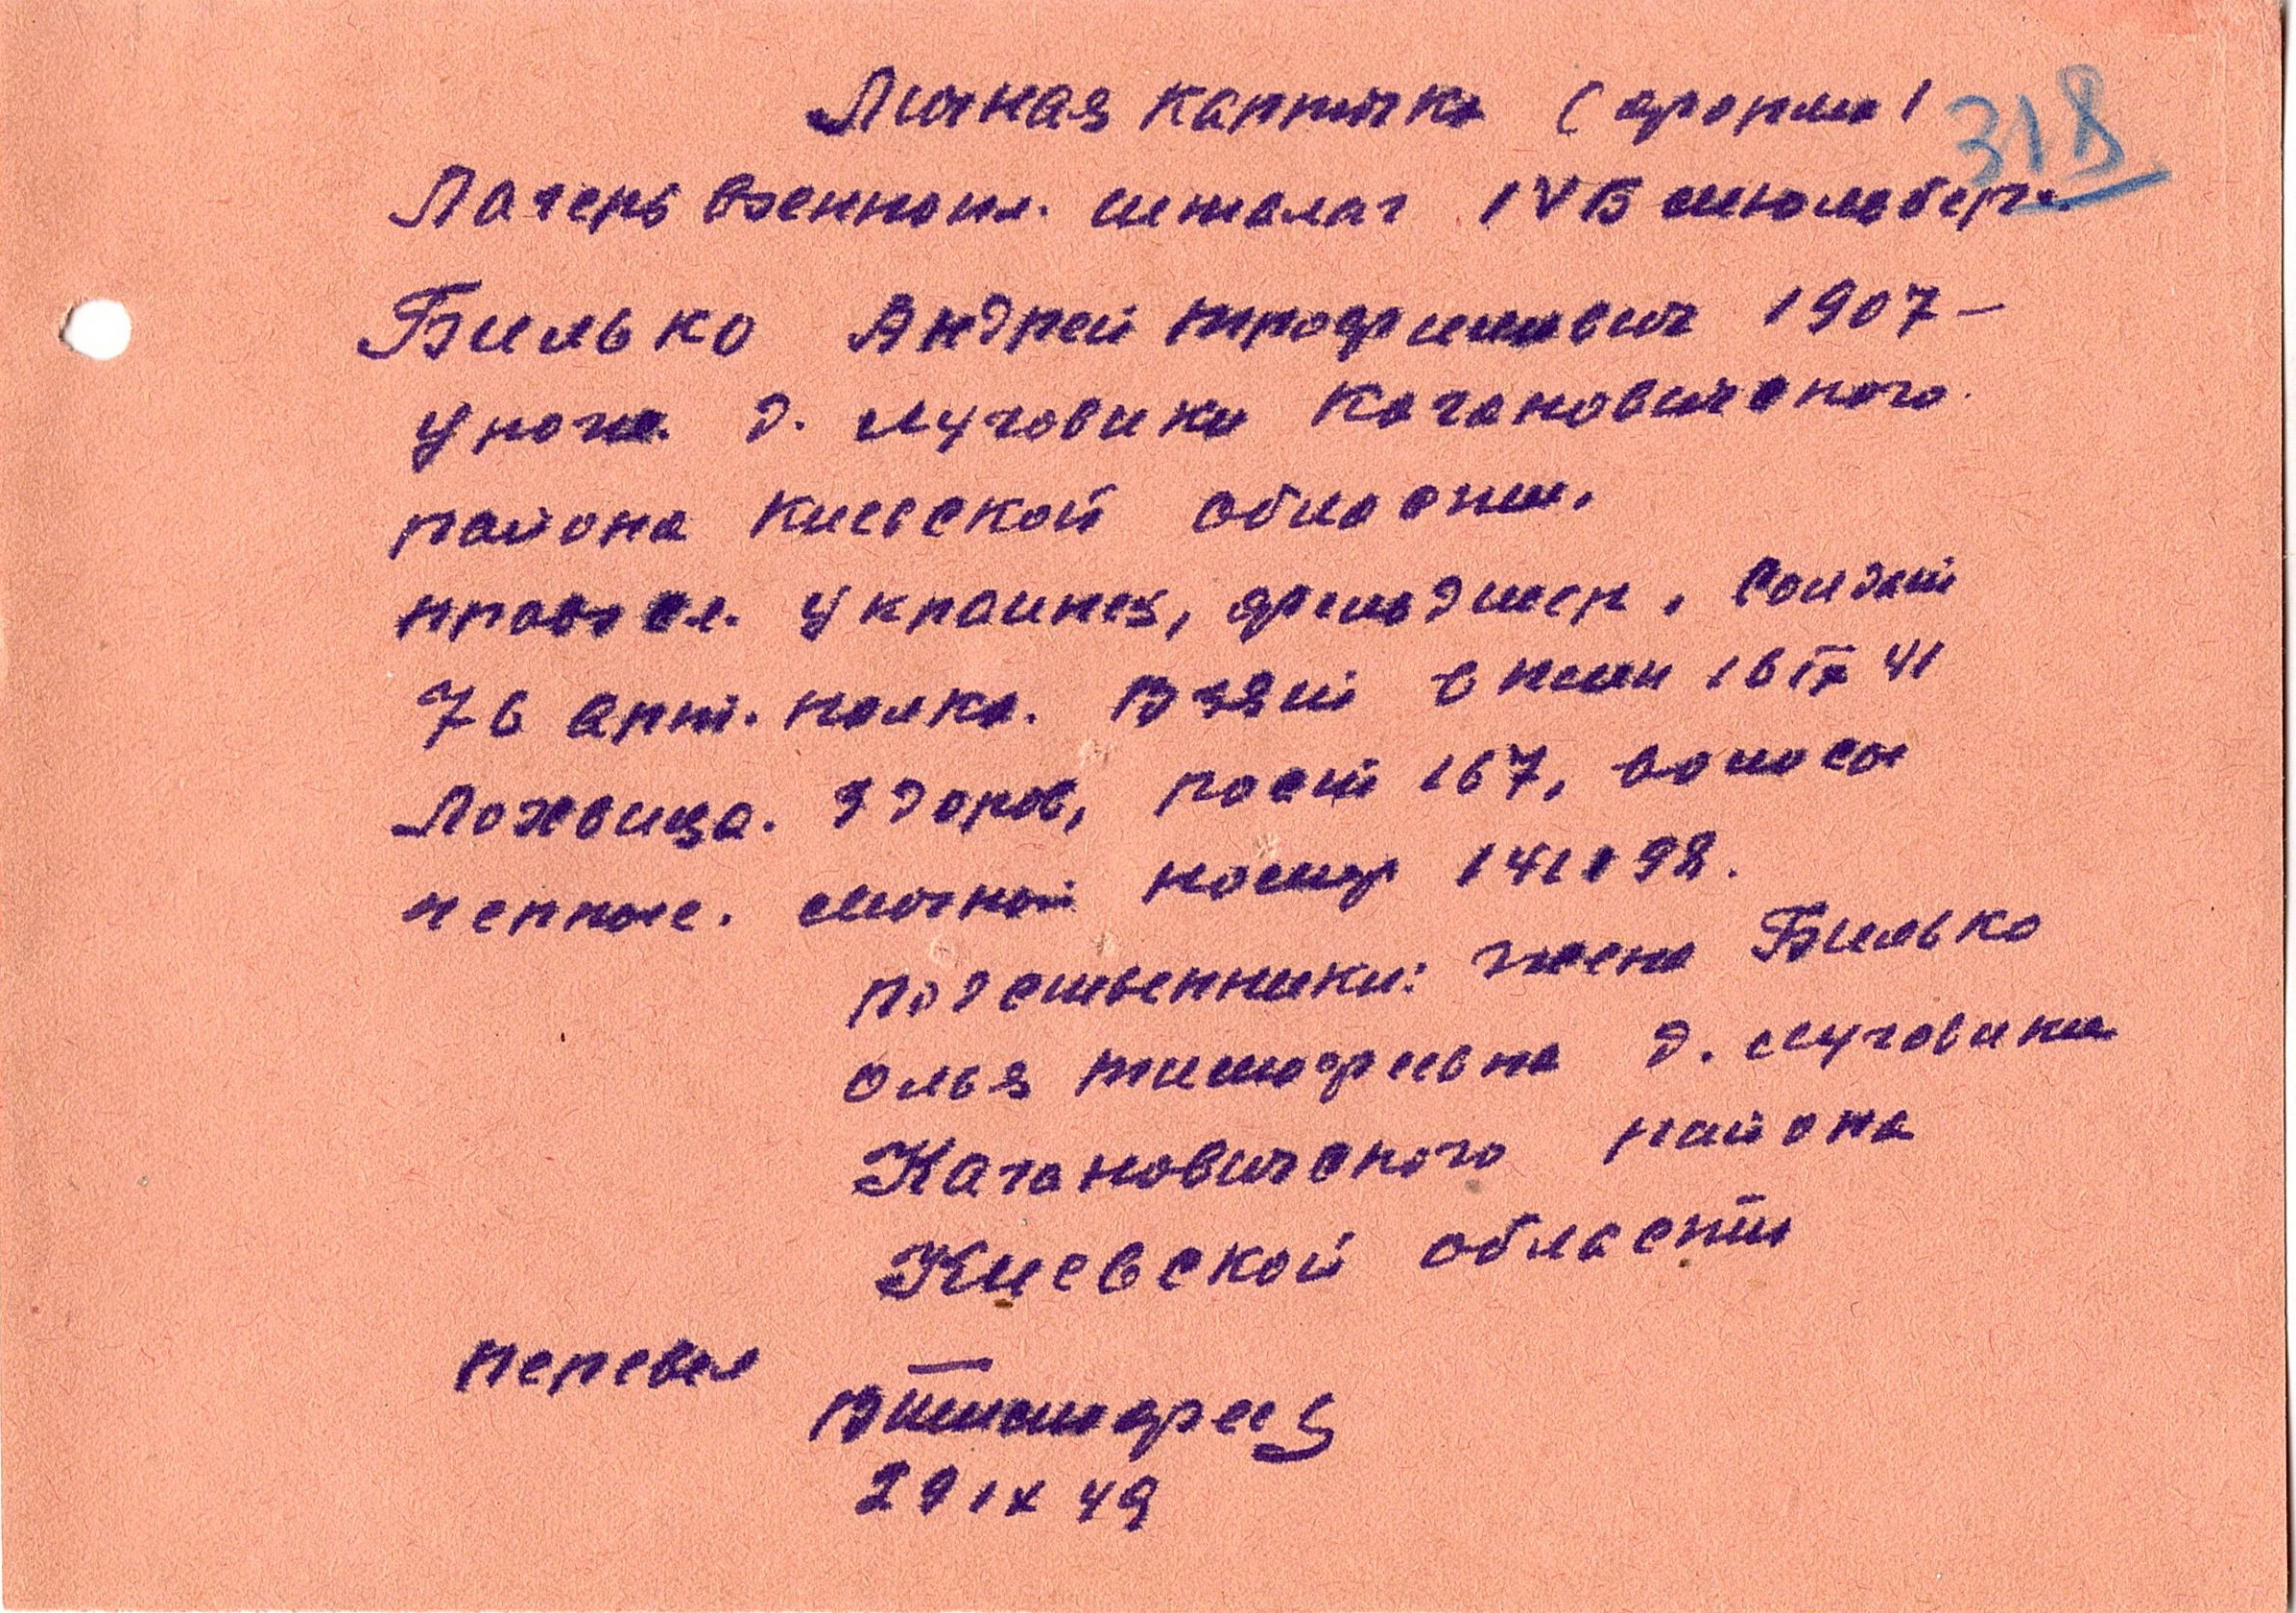 Личная карточка (
318
Лагерь военнопл. шталаг IVБ мюльберг.
Билько Андрей трофимович 1907 –
урож. д. Луговики Кагановичского
района Киевской области.
правосл. украинец, фельдшер, солдат
76 арт. полка. Взят в плен 16 IX 41
Лохвица. Здоров, рост 167, волосы
черные. личной номер
родственники: жена Билько
ольга тимофеевна д. луговики
Кагановичского района
Киевской области
перевел
Втимофеев
29 IX 49